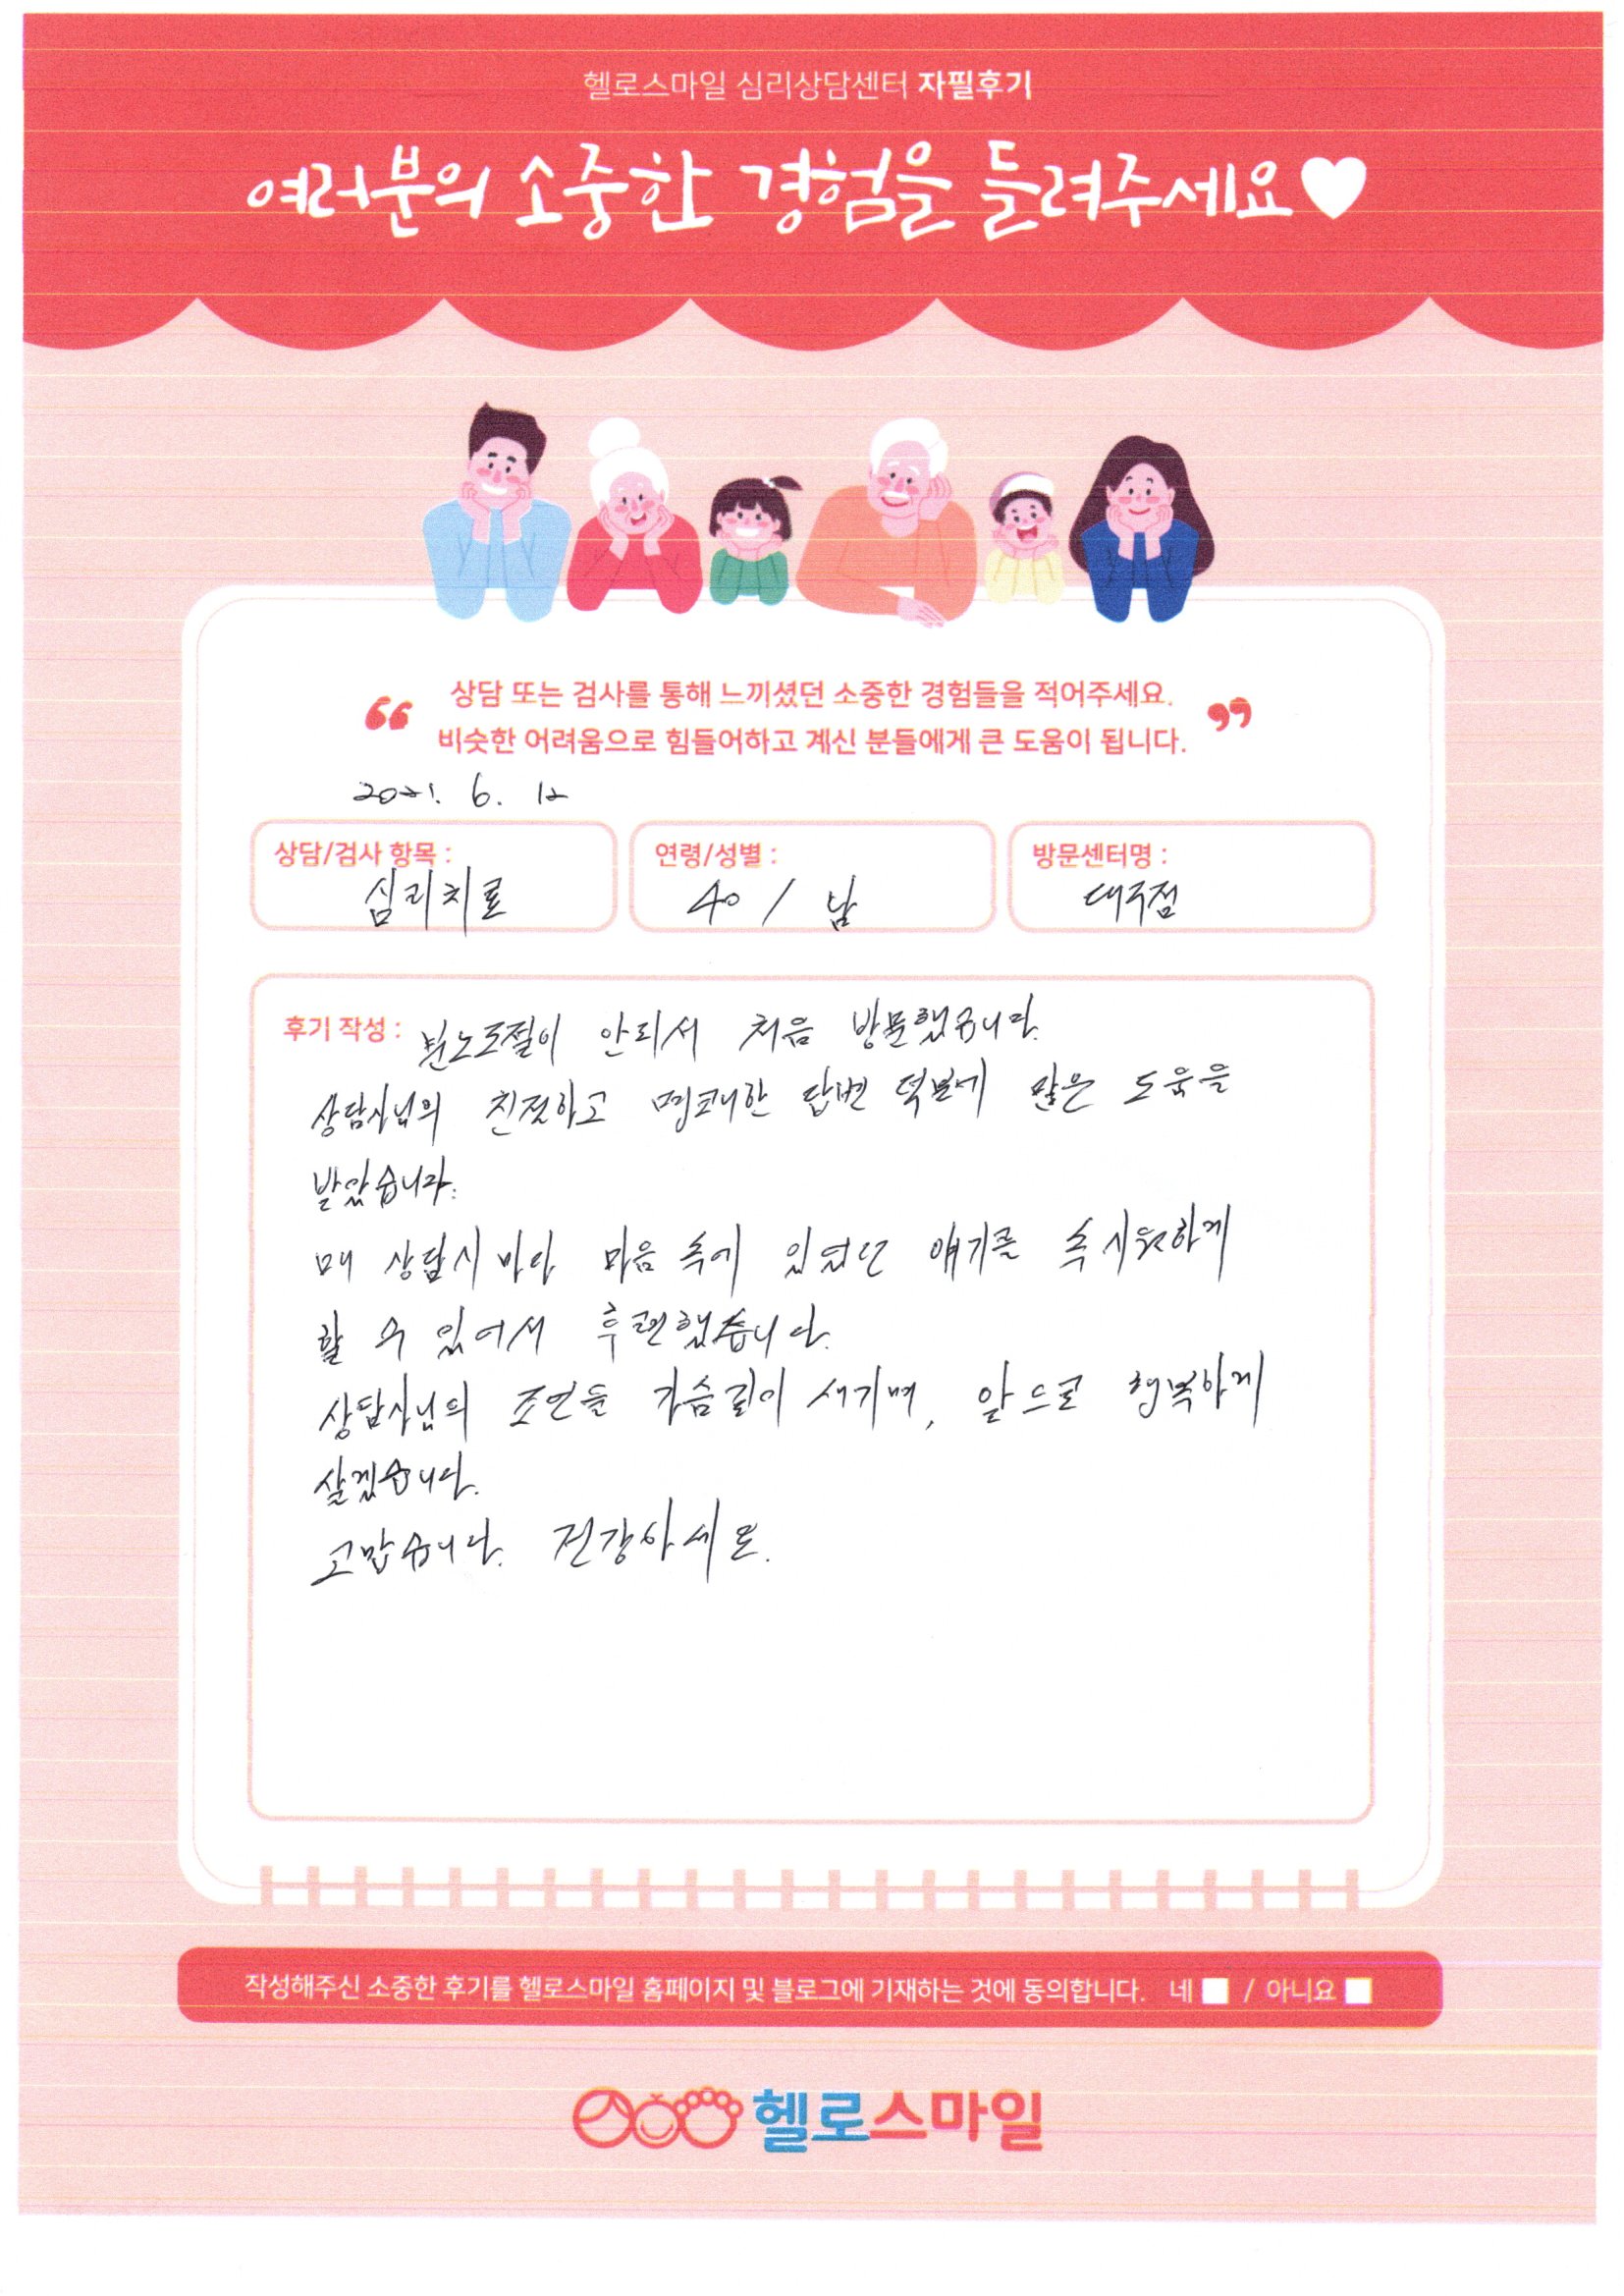 헬로스마일 심리상담센터 자필후기
여러분의 소중한 경험을 들려주세요
상담 또는 검사를 통해 느끼셨던 소중한 경험들을 적어주세요.
비슷한 어려움으로 힘들어하고 계신 분들에게 큰 도움이 됩니다.
2021. 6. 12
상담/검사 항목 :
심리치료
연령/성별 :
40 / 남
방문센터명 :
후기 작성 : 분노조절이 안되서 처음 방문했습니다.
상담사님의 친절하고 명쾌한 답변 덕분에 많은 도움을
받았습니다.
매 상담시 마다 마음 속에 있었던 얘기를 속 시원하게
할 수 있어서 후련했습니다.
상담사님의 조언들 가슴깊이 새기며, 앞으로 행복하게
살겠습니다.
고맙습니다. 건강하세요.
작성해주신 소중한 후기를 헬로스마일 홈페이지 및 블로그에 기재하는 것에 동의합니다. 네 / 아니요
헬로스마일